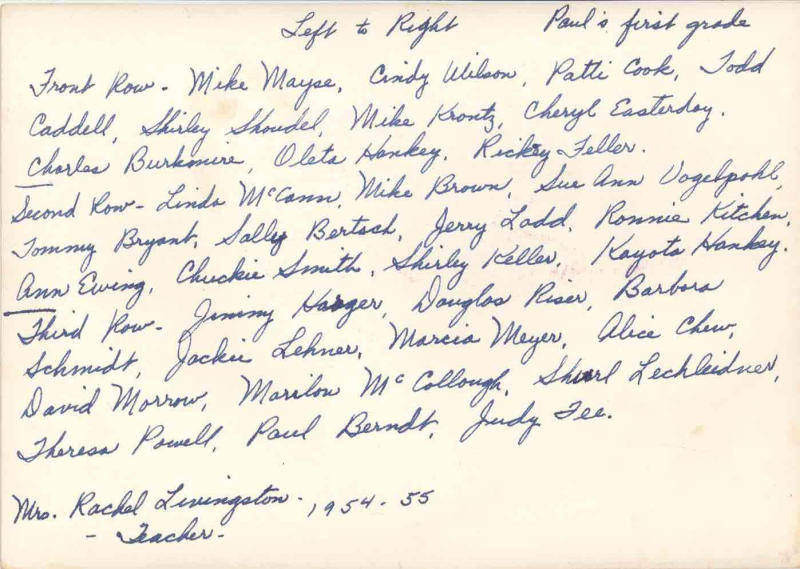 Left to Right Paul's first grade
Front Row - Mike Mayse, Cindy Wilson, Patti Cook, Todd
Caddell, Shirley Shoudel, Mike Krontz, Cheryl Easterday.
Charles Burkmire, Oleta Hankey, Rickey Feller.
Second Row - Linda McCann, Mike Brown, Sue Ann Vogelpohl,
Tommy Bryant, Sally Bertsch, Jerry Ladd, Ronnie Kitchen,
Ann Ewing, Chuckie Smith, Shirley Keller, Kayota Hankey.
Third Row - Jimmy Harger, Douglas Riser, Barbara
Schmidt, Jackie Lehner, Marcia Meyer, Alice Chew,
David Morrow, Marilou McCollough, Lechleidner,
Theresa Powell, Paul Berndt, Judy Fee.
Mrs. Rachel Livingston - 1954-55
- Teacher -